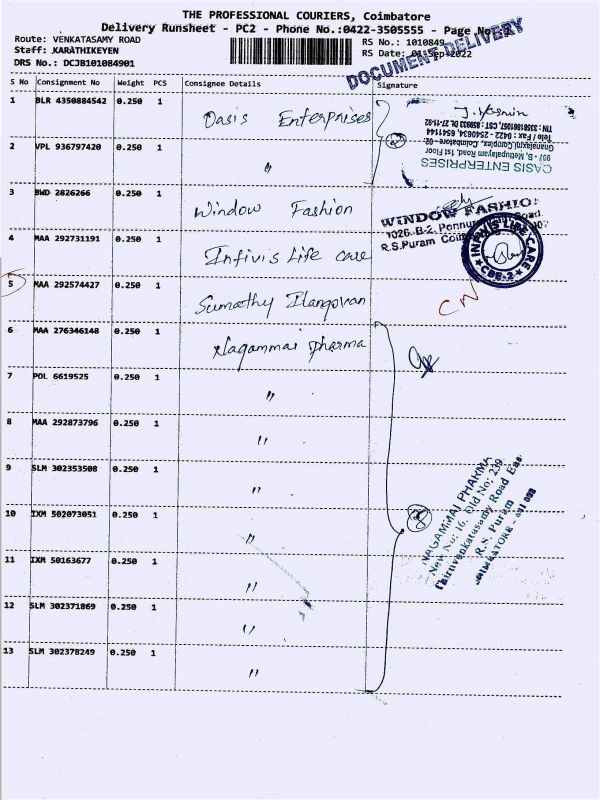 THE PROFESSIONAL COURIERS, Coimbatore
Delivery Runsheet - PC2 - Phone No.:0422-3505555 - Page No.
Route: VENKATASAMY ROAD
RS No.: 1010849
Staff: KARATHIKEYEN
RS Date: 01-Sep-2022
DRS No.: DCJB101084901
DOCUMENT DELIVERY
S No Consignment No Weight PCS Consignee Details Signature
1 BLR 4350884542 0.250 1 Oasis Enterprises
2 VPL 936797420 0.250 1 "
OASIS ENTERPRISES
907, B, Mettupalayam Road, 1st Floor
Gnanalaxmi Complex, Coimbatore - 02.
Tele / Fax : 0422 - 2540634, 6541144
3 BWD 2826266 0.250 1 Window Fashion
WINDOW FASHION
1026. B-2. Road.
R.S.Puram
4 MAA 292731191 0.250 1 Infivis Life care
INFIVIS LIFE CARE
CBE-2
5 MAA 292574427 0.250 1 Sumathy Ilangovan
CN
6 MAA 276346148 0.250 1 Nagammai Pharma
7 POL 6619525 0.250 1 "
8 MAA 292873796 0.250 1 "
9 SLM 302353508 0.250 1 "
10 IXM 502073051 0.250 1 "
11 IXM 50163677 0.250 1 "
12 SLM 302371869 0.250 1 "
13 SLM 302378249 0.250 1 "
NAGAMMAI PHARMA
New No: 16, Old No: 239
Thiruvenkatasamy Road East
R.S. Puram
COIMBATORE - 641 002